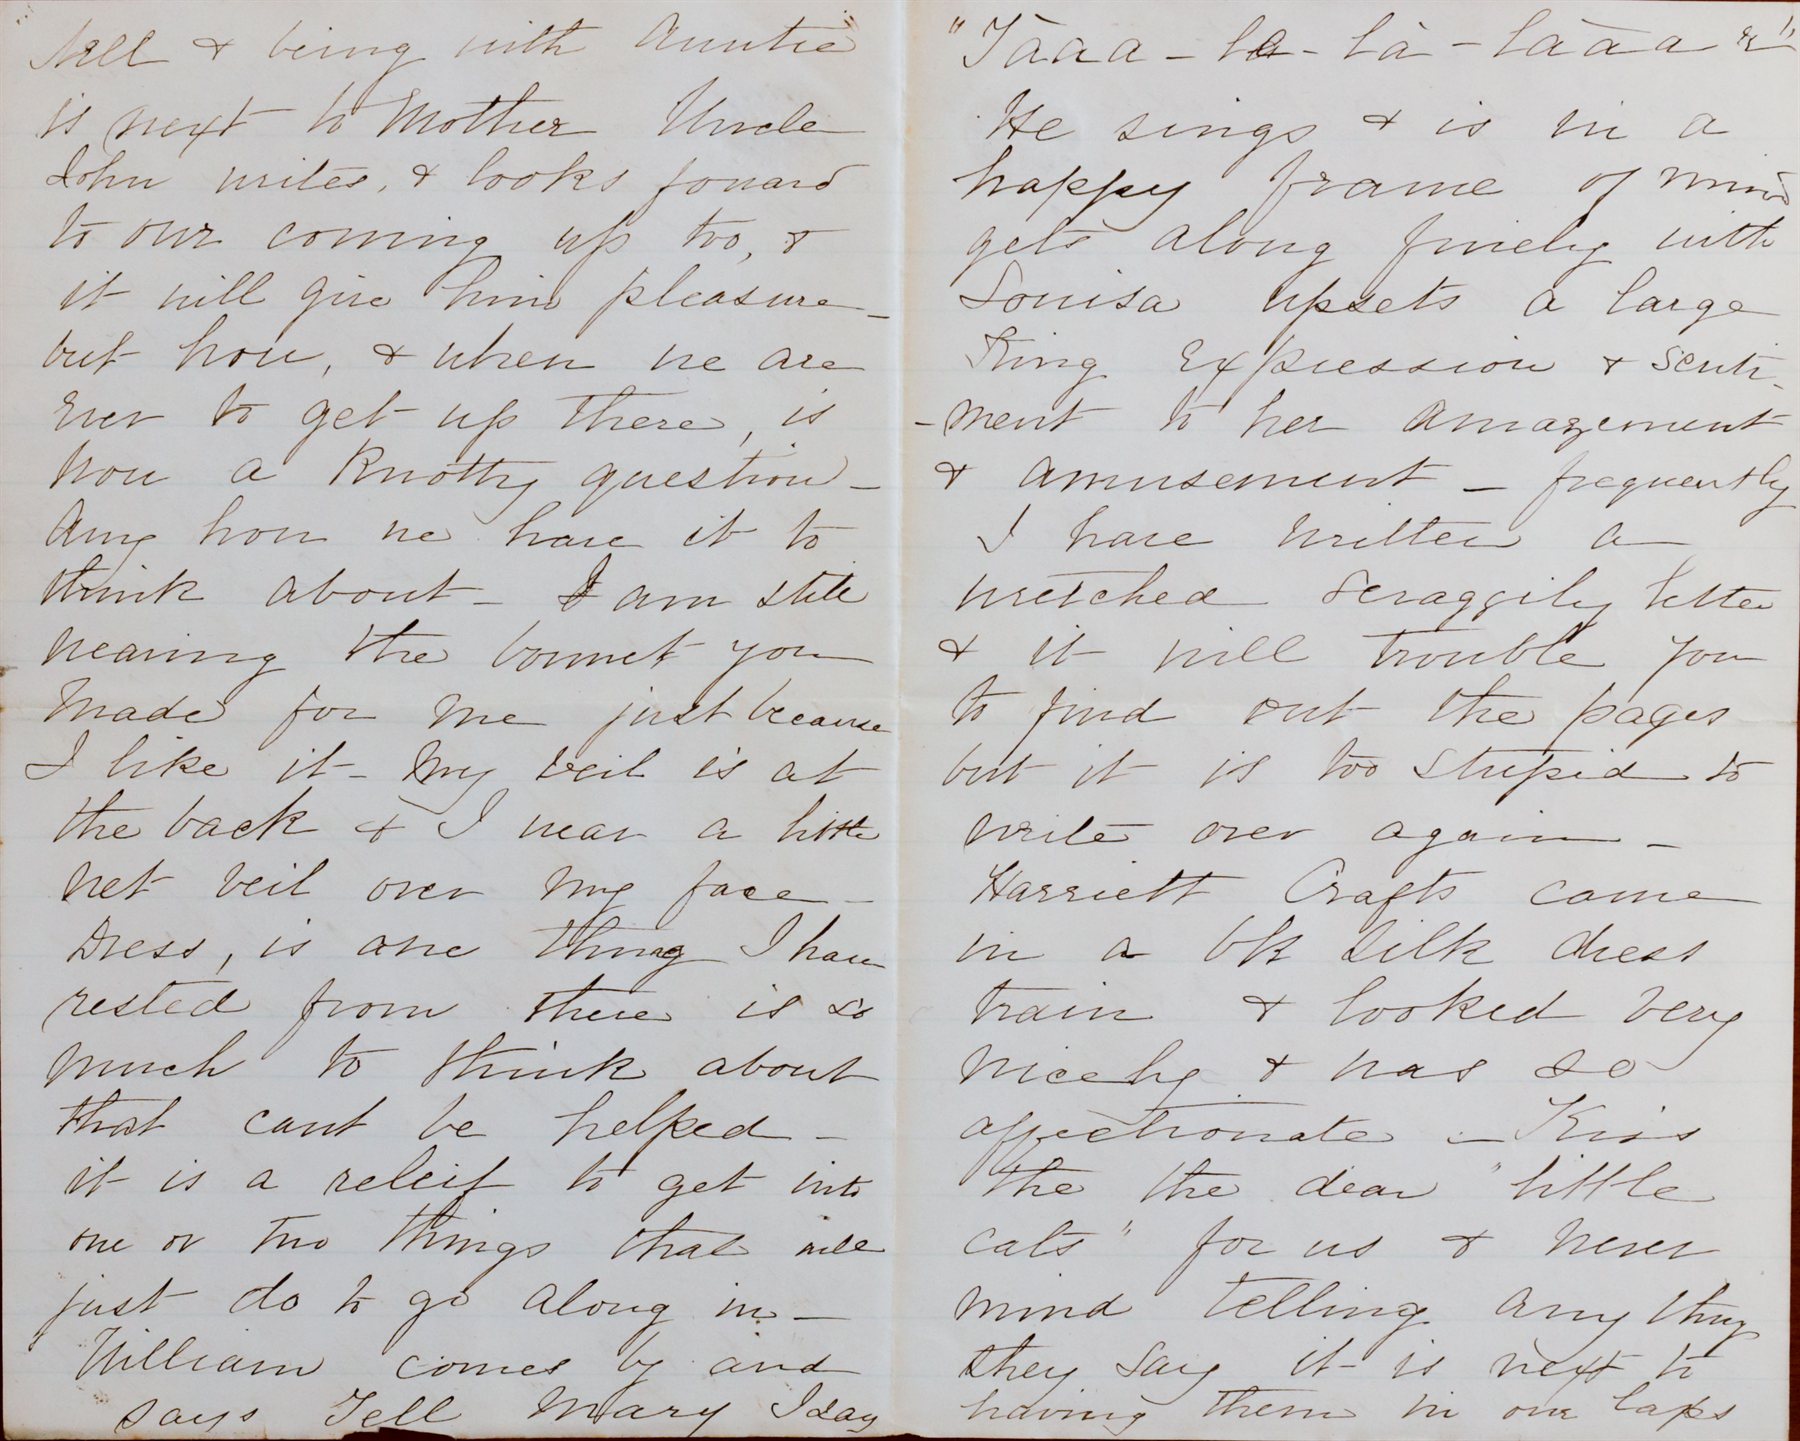 Nell & being with Auntie"
is next to Mother Uncle
John writes, & looks foward
to our coming up too, &
it will give him pleasure -
but how, & when we are
ever to get up there, is
now a Knotty question -
Any how we have it to
think about - I am still
wearing the bonnet you
made for me just because
I like it - My veil is at
the back & I wear a little
net veil over my face -
Dress, is one thing I have
rested from there is so
much to think about
that cant be helped -
it is a releif to get into
one or two things that will
just do to go along in -
William comes by and
says Tell Mary I say
"Tàaa - la - là - làaa &"
He sings & is in a
happy frame of mind
gets along finely with
Louisa upsets a large
King expression & senti-
-ment to her amazement
& amusement - frequently
I have written a
wretched scraggily letter
& it will trouble you
to find out the pages
but it is too stupid to
write over again -
Harriett Crafts came
in a bk silk dress
train & looked very
nicely & was so
affectionate - Kiss
the the dear "little
cats" for us & never
mind telling any thing
they say it is next to
having them in our laps